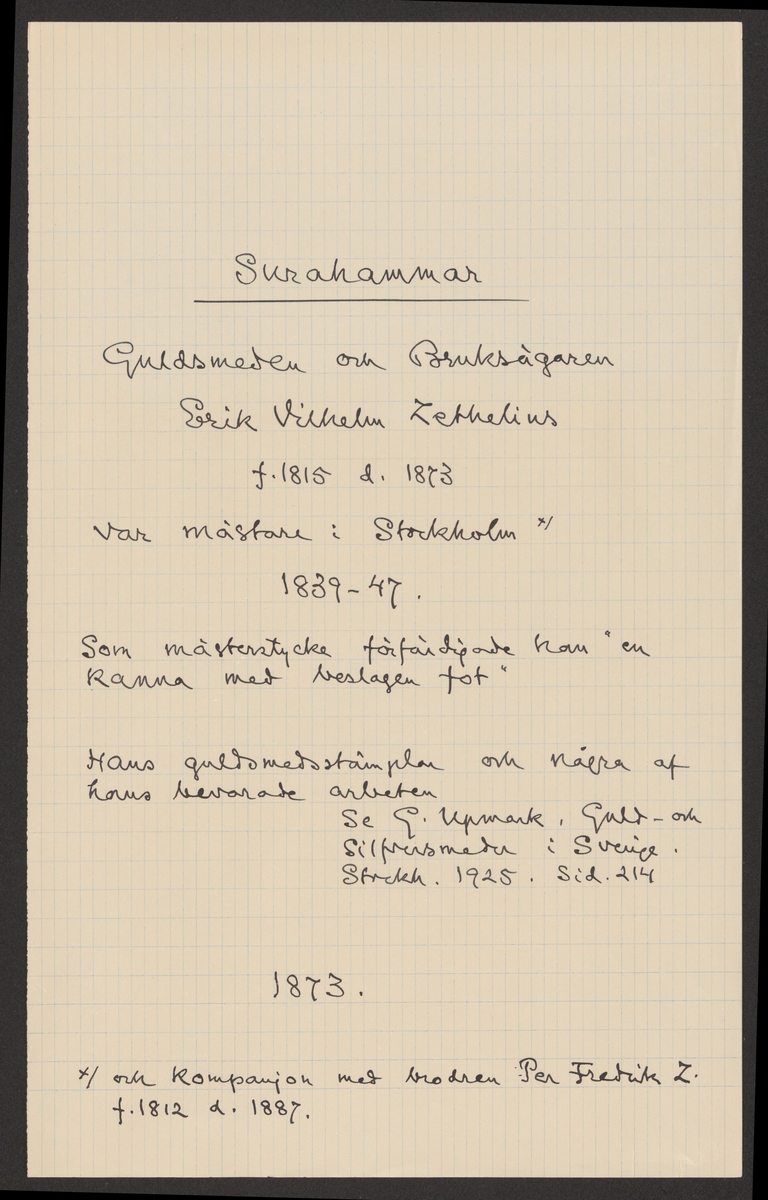 Surahammar
Guldsmeden och Bruksägaren
Erik Vilhelm Zethelius
f. 1815 d. 1873
var mästare i Stockholm x/
1839-47.
Som mästerstycke förfärdigade han "en
kanna med beslagen fot"
Hans guldsmedsstämplar och några af
hans bevarade arbeten
Se G. Upmark, Guld- och
Silfversmeder i Sverige.
Stockh. 1925. Sid. 214
1873.
x/ och kompanjon med brodren Per Fredrik Z.
f. 1812 d. 1887.